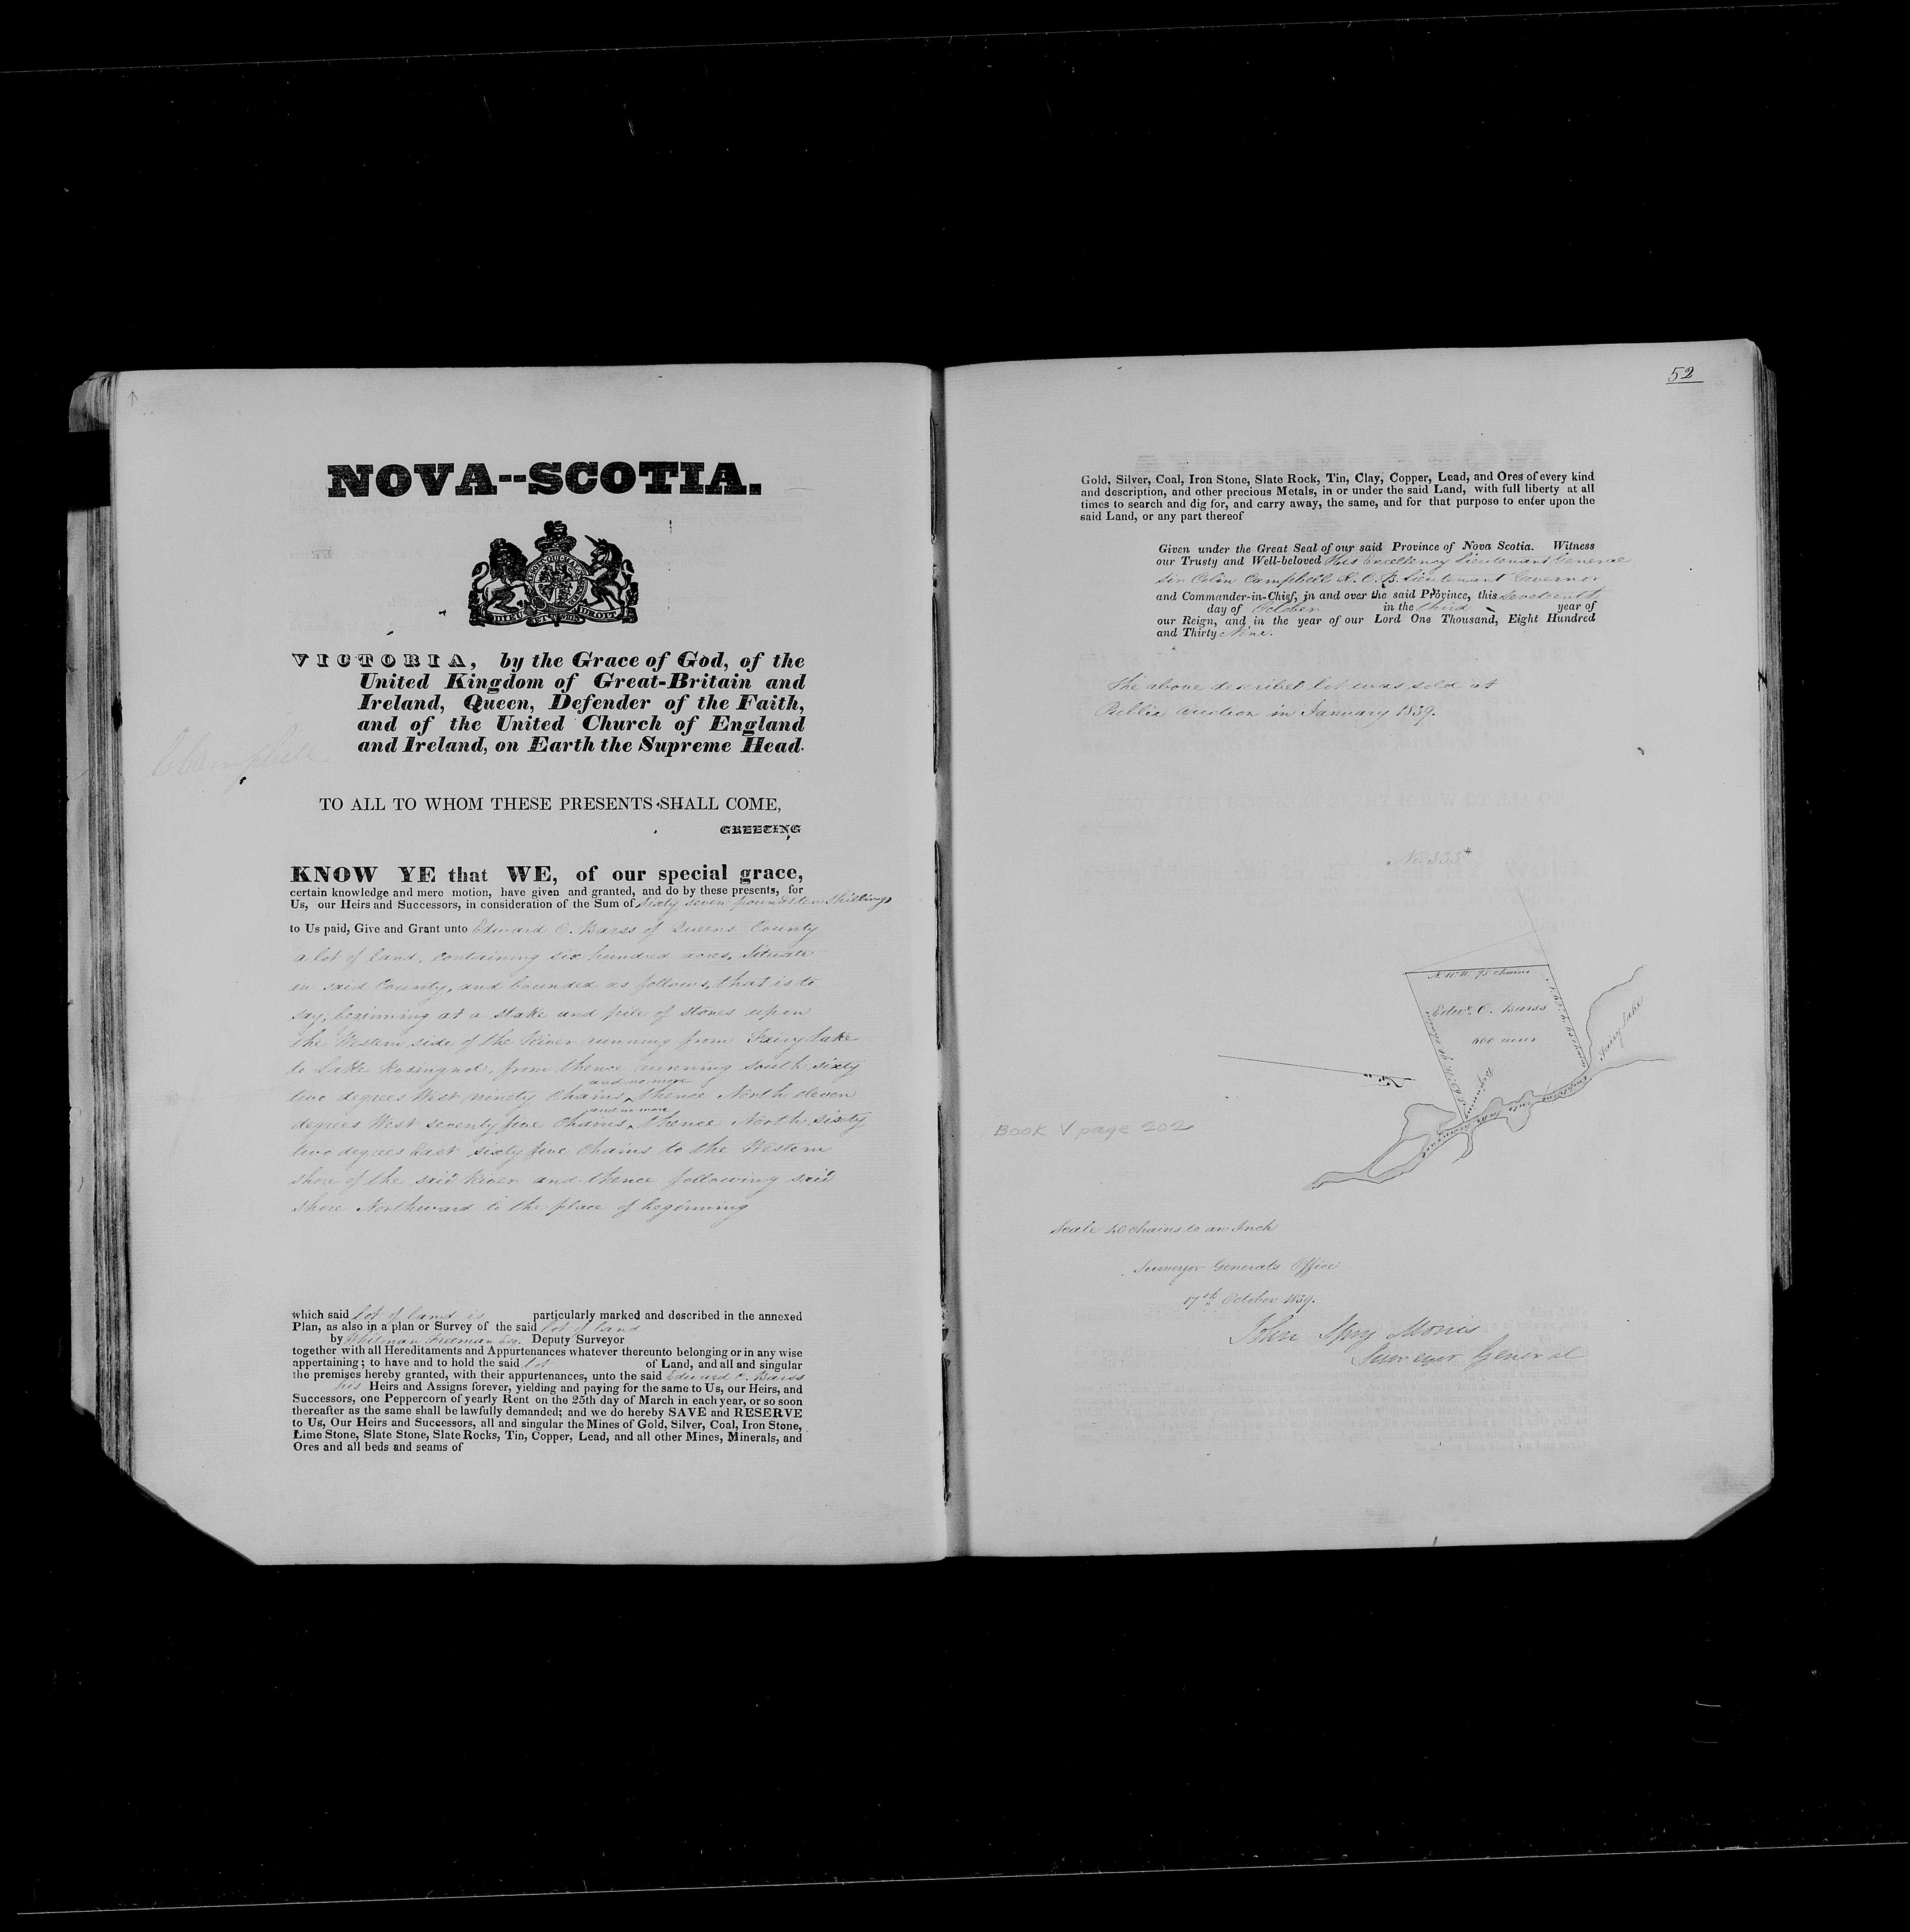 NOVA--SCOTIA.
DIEU ET MON DROIT
VICTORIA, by the Grace of God, of the
United Kingdom of Great-Britain and
Ireland, Queen, Defender of the Faith,
and of the United Church of England
and Ireland, on Earth the Supreme Head.
C Campbell
TO ALL TO WHOM THESE PRESENTS SHALL COME,
GREETING
KNOW YE that WE, of our special grace,
certain knowledge and mere motion, have given and granted, and do by these presents, for
Us, our Heirs and Successors, in consideration of the Sum of sixty seven pounds ten shillings
to Us paid, Give and Grant unto Edward C. Barss of Queens County
a lot of land, containing six hundred acres, Situate
in said County, and bounded as follows, that is to
say; beginning at a stake and pile of stones upon
the Western side of the River running from Fairy Lake
to Lake Rosengnol, from thence running South sixty
two degrees West ninety Chains and no more thence North eleven
degrees West seventy five Chains and no more thence North sixty
two degrees East sixty five Chains to the Western
shore of the said River and thence following said
shore Northward to the place of beginning
which said lot of land is particularly marked and described in the annexed
Plan, as also in a plan or Survey of the said lot of land
by Whitman Freeman Esq. Deputy Surveyor
together with all Hereditaments and Appurtenances whatever thereunto belonging or in any wise
appertaining; to have and to hold the said lot of Land, and all and singular
the premises hereby granted, with their appurtenances, unto the said Edward C. Barss
his Heirs and Assigns forever, yielding and paying for the same to Us, our Heirs, and
Successors, one Peppercorn of yearly Rent on the 25th day of March in each year, or so soon
thereafter as the same shall be lawfully demanded; and we do hereby SAVE and RESERVE
to Us, Our Heirs and Successors, all and singular the Mines of Gold, Silver, Coal, Iron Stone,
Lime Stone, Slate Stone, Slate Rocks, Tin, Copper, Lead, and all other Mines, Minerals, and
Ores and all beds and seams of
52
Gold, Silver, Coal, Iron Stone, Slate Rock, Tin, Clay, Copper, Lead, and Ores of every kind
and description, and other precious Metals, in or under the said Land, with full liberty at all
times to search and dig for, and carry away, the same, and for that purpose to enter upon the
said Land, or any part thereof
Given under the Great Seal of our said Province of Nova Scotia. Witness
our Trusty and Well-beloved His Excellency Lieutenant General
Sir Colin Campbell K.C.B. Lieutenant Governor
and Commander-in-Chief, in and over the said Province, this seventeenth
day of October in the third year of
our Reign, and in the year of our Lord One Thousand, Eight Hundred
and Thirty Nine.
The above described lot was sold at
Public Auction in January 1839.
N. 11 W. 75 chains
Edwd. C. Barss
600 acres
Fairy Lake
Beginning
BOOK V page 202
Scale 40 chains to an Inch
Surveyor Generals Office
17th October 1839.
John Spry Morris
Surveyor General